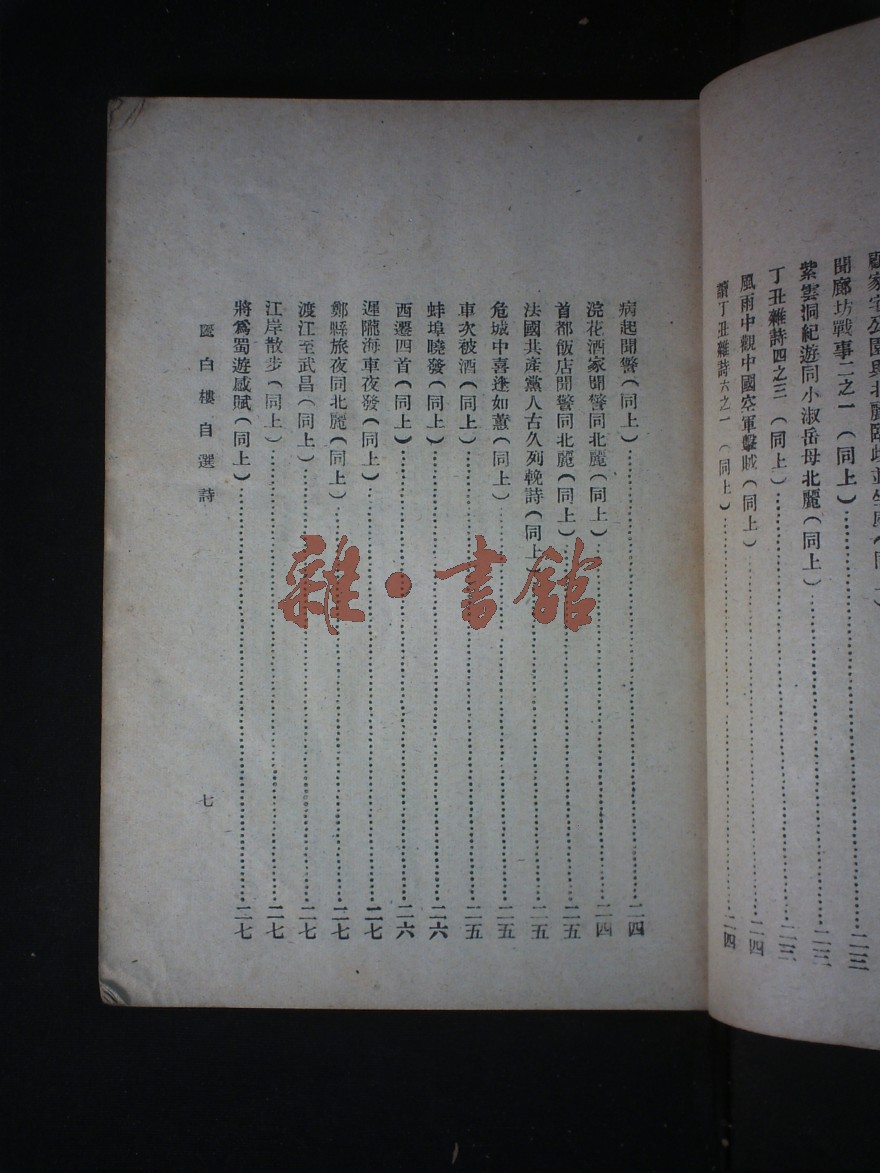 聞廊坊戰事二之一(同上)……二三
紫雲洞紀遊同小淑岳母北麗(同上)……二三
丁丑雜詩四之三(同上)……二三
風雨中觀中國空軍擊賊(同上)……二四
讀丁丑雜詩六之一(同上)……二四
病起聞警(同上)……二四
浣花酒家聞警同北麗(同上)……二四
首都飯店聞警同北麗(同上)……二五
法國共產黨人古久列輓詩(同上)……二五
危城中喜逢如蕙(同上)……二五
車次被酒(同上)……二五
蚌埠曉發(同上)……二六
西遷四首(同上)……二六
遲隴海車夜發(同上)……二七
鄭縣旅夜同北麗(同上)……二七
渡江至武昌(同上)……二七
江岸散步(同上)……二七
將爲蜀遊感賦(同上)……二七
白樓自選詩
七
雜·書館